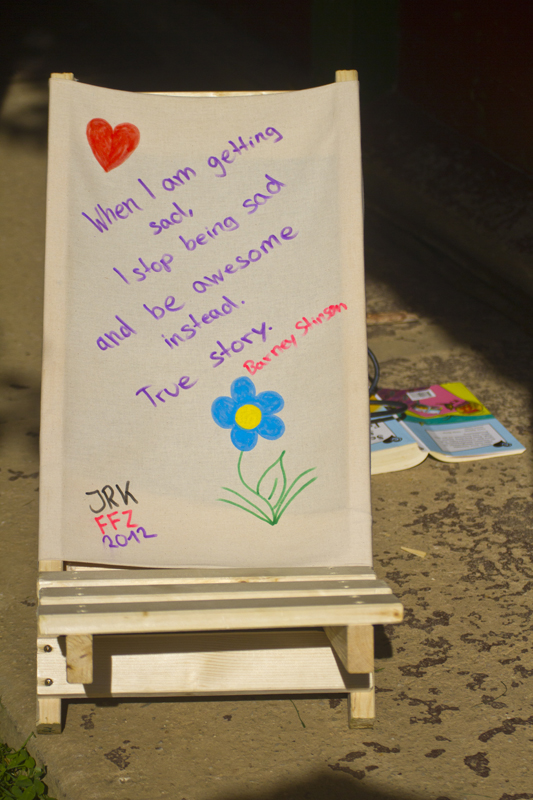 When I am getting
sad,
I stop being sad
and be awesome
instead.
True story.
Barney Stinson
JRK
FFZ
2012